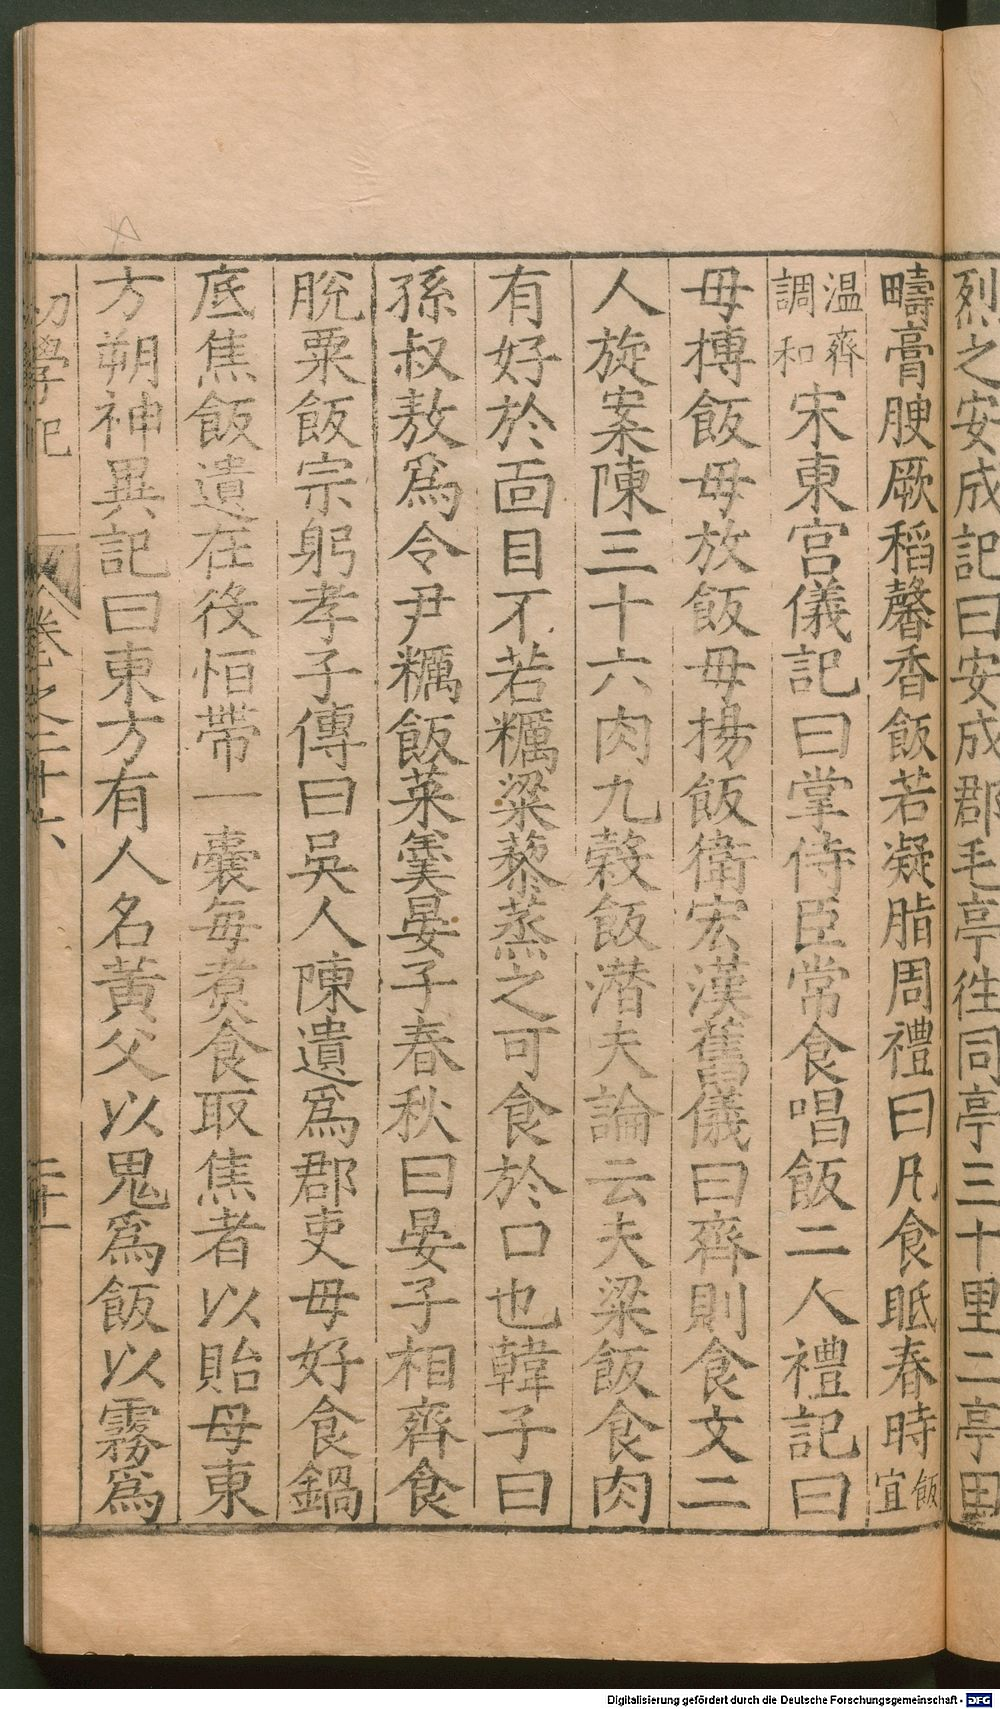 烈之安成記曰安成郡毛亭徃同亭三十里二亭田
疇膏腴厥稻馨香飯若凝脂周禮曰凡食眡春時飯宜
温齊調和宋東宫儀記曰掌侍臣常食唱飯二人禮記曰
毋摶飯毋放飯毋揚飯衛宏漢舊儀曰齊則食文二
人旋案陳三十六肉九穀飯潜夫論云夫粱飯食肉
有好於面目不若糲粱藜蒸之可食於口也韓子曰
孫叔敖爲令尹糲飯菜羹晏子春秋曰晏子相齊食
脫粟飯宗躬孝子傳曰吳人陳遺爲郡吏母好食鍋
底焦飯遺在役恒帶一囊每煑食取焦者以貽母東
方朔神異記曰東方有人名黃父以鬼爲飯以霧爲
初學記 卷之二十六 二十一
Digitalisierung gefördert durch die Deutsche Forschungsgemeinschaft - DFG